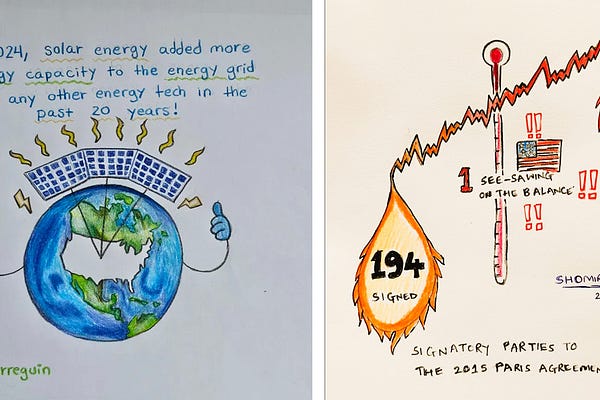 024, solar energy added more
gy capacity to the energy grid
any other energy tech in the
past 20 years!
rreguin
1 SEE-SAWING
ON THE BALANCE
!!
!!
!!
194
SIGNED
SHOMIR
2
SIGNATORY PARTIES TO
THE 2015 PARIS AGREEMEN